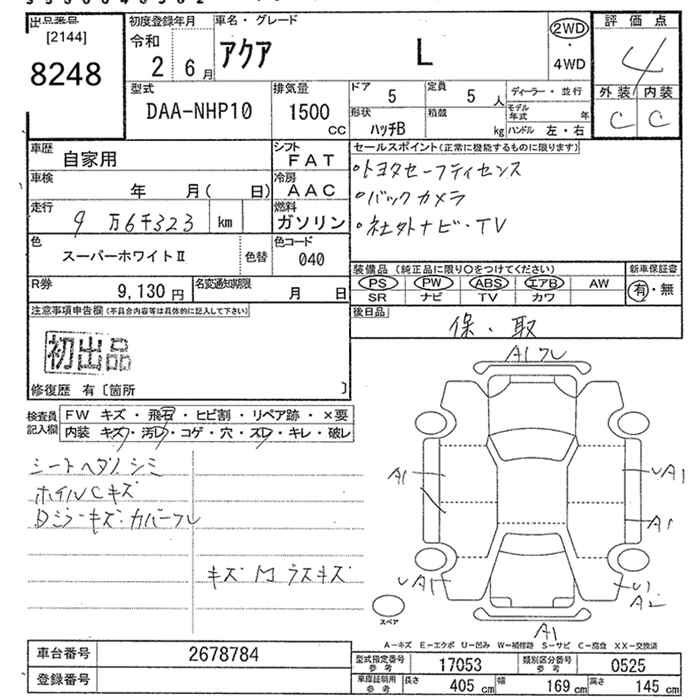 出品番号
[2144]
8248
初度登録年月
令和
2 6月
車名・グレード
アクア L
2WD
・
4WD
評価点
4
外装 内装
C C
型式
DAA-NHP10
排気量
1500
CC
ドア
5
定員
5 人
ディーラー・並行
形状
ハッチB
積載
kg
モデル年式 年
ハンドル 左・右
車歴
自家用
シフト
FAT
車検
年 月( 日)
冷房
AAC
走行
9万6千323 km
燃料
ガソリン
色
スーパーホワイトⅡ
色替
色コード
040
R券
9,130円
名変通知期限
月 日
セールスポイント(正常に機能するものに限ります)
・トヨタセーフティセンス
・バックカメラ
・社外ナビ・TV
装備品 (純正品に限り○をつけてください)
PS PW ABS エアB AW
SR ナビ TV カワ
新車保証書
有・無
後日品
保・取
注意事項申告欄(不具合内容等は具体的に記入して下さい)
初出品
修復歴 有〔箇所 〕
検査員
記入欄
FW キズ・飛石・ヒビ割・リペア跡・×要
内装 キズ・汚レ・コゲ・穴・スレ・キレ・破レ
シートヘタノシミ
ホイルCキズ
Dミラーキズ・カバーフレ
キズ
ラスキズ
A1フレ
A1
A1
A1
A1
A2
A1
スペア
A-キズ E-エクボ U-凹み W-補修跡 S-サビ C-腐食 XX-交換済
車台番号
2678784
登録番号
型式指定番号
参考
17053
類別区分番号
参考
0525
車庫証明用
参考
長さ 405cm 幅 169cm 高さ 145cm